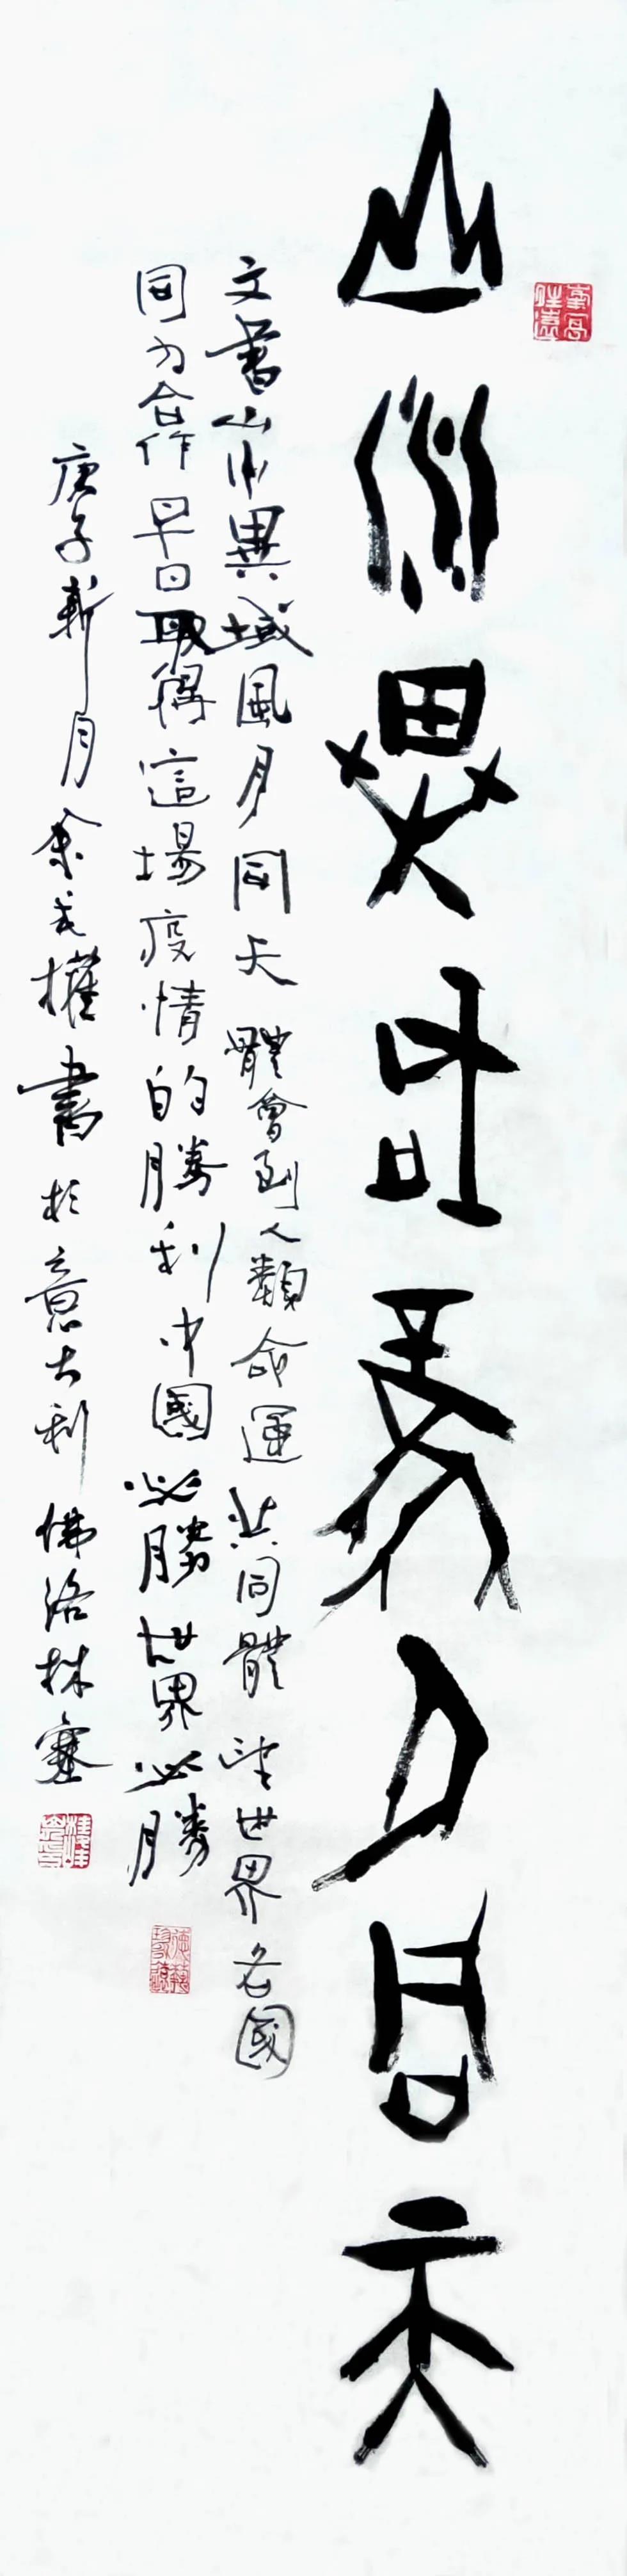 山川異域風月同天
文書山川異域風月同天 體會到人類命運共同體 望世界各國
同力合作 早日取得這場疫情的勝利中國必勝世界必勝
庚子新月余 權書於意大利佛洛林塞